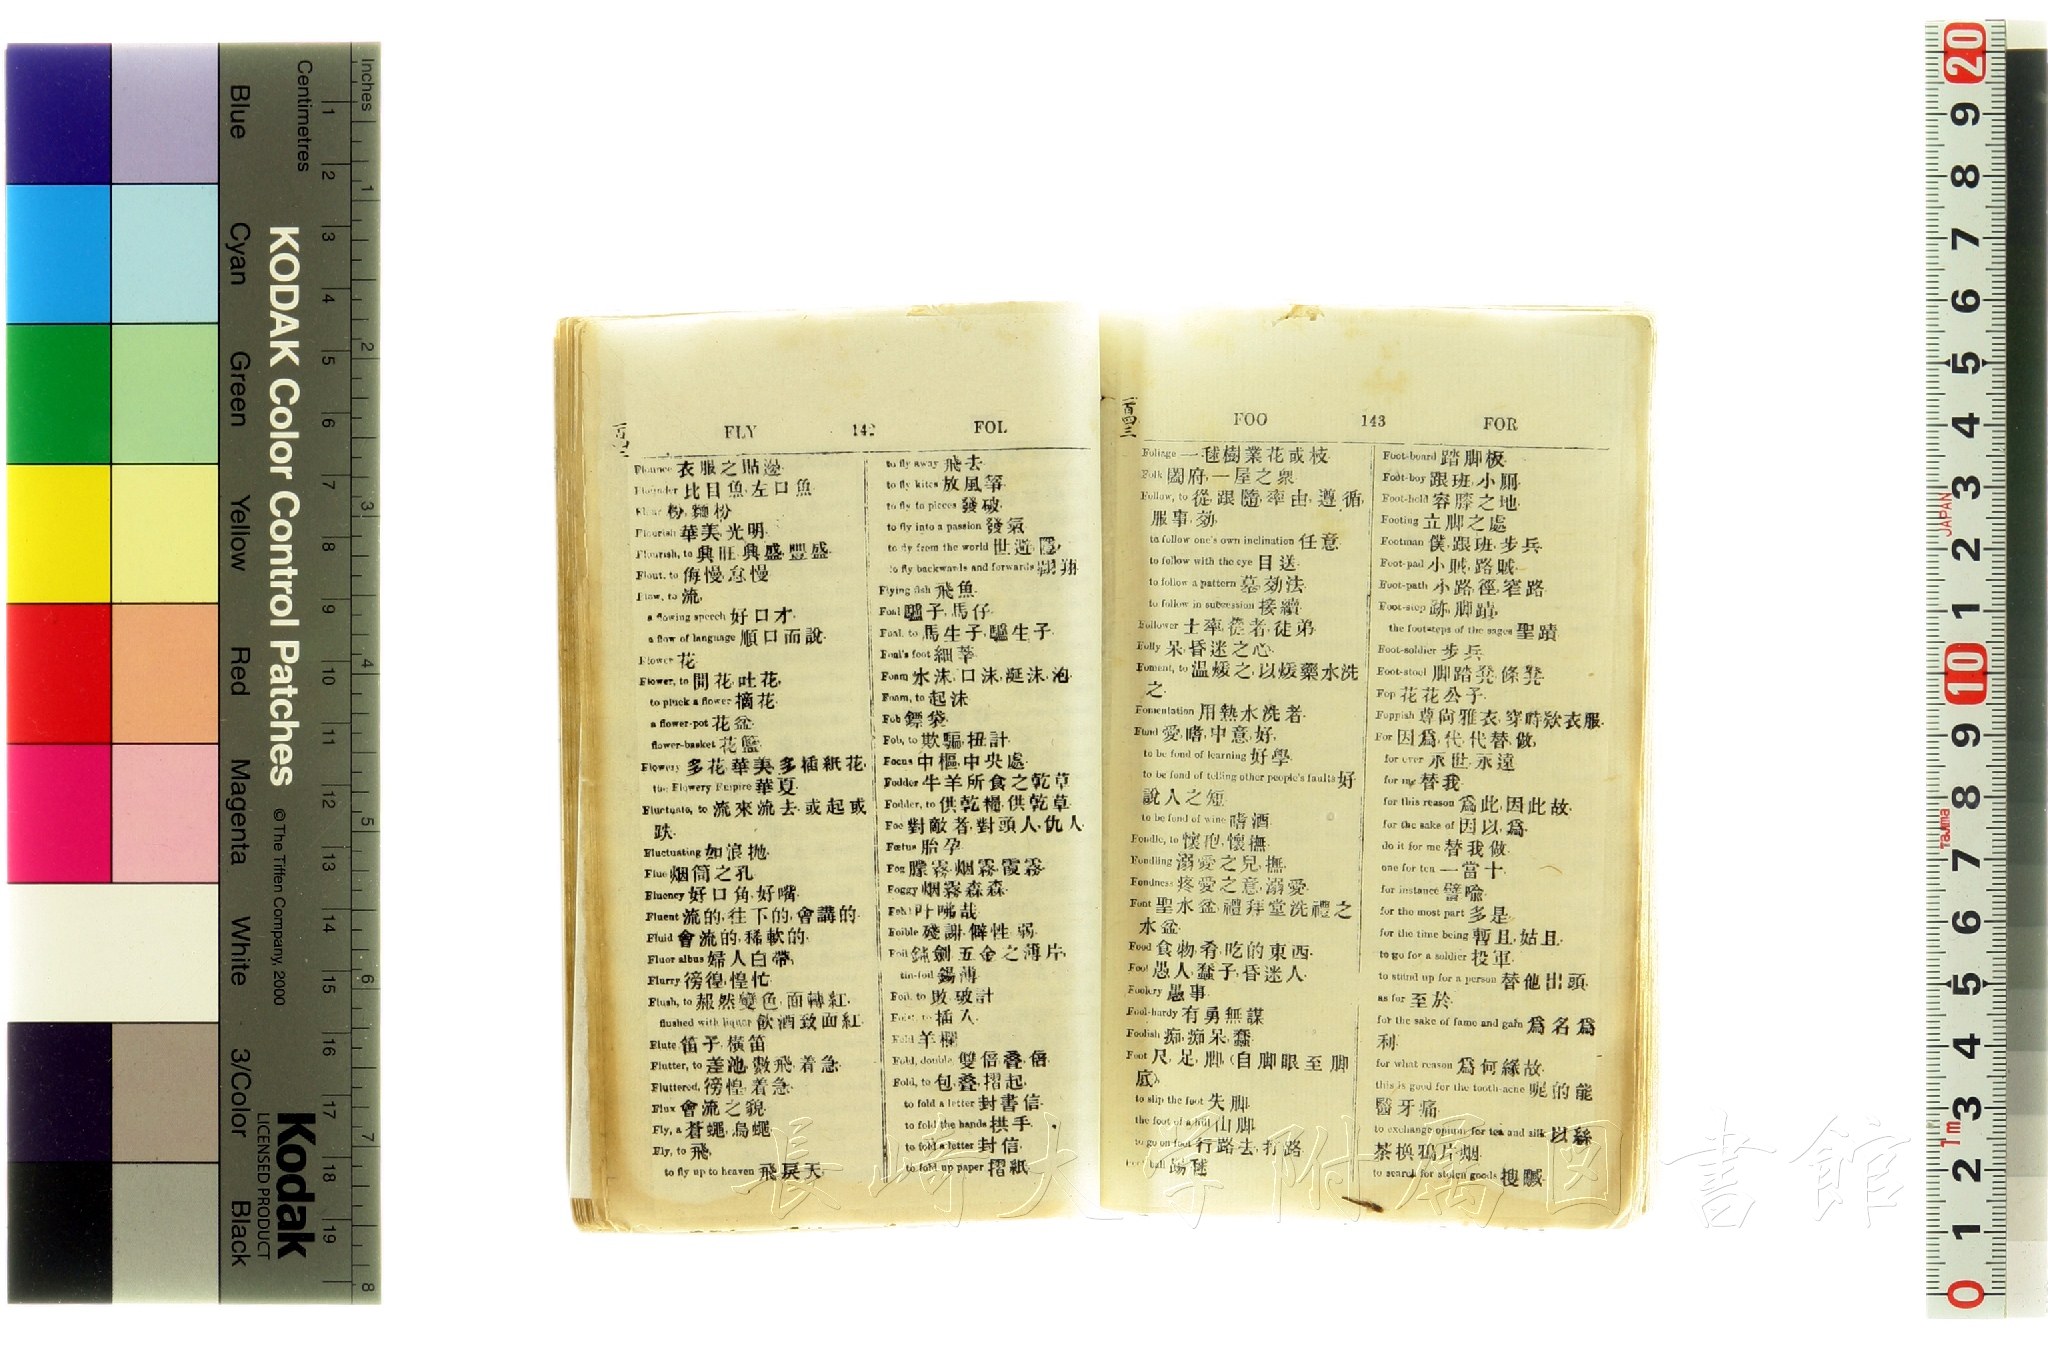 Blue
Cyan
Green
Yellow
Red
Magenta
White
3/Color
Black
KODAK Color Control Patches
© The Tiffen Company, 2000
Kodak
LICENSED PRODUCT
Centimetres
1 2 3 4 5 6 7 8 9 10 11 12 13 14 15 16 17 18 19
Inches
1 2 3 4 5 6 7 8
FLY 142 FOL
Flounce 衣服之貼邊
Flounder 比目魚,左口魚
Flour 粉,麵粉
Flourish 華美,光明
Flourish, to 興旺,興盛,豐盛
Flout, to 侮慢,怠慢
Flow, to 流
a flowing speech 好口才
a flow of language 順口而說
Flower 花
Flower, to 開花,吐花
to pluck a flower 摘花
a flower-pot 花盆
flower-basket 花籃
Flowery 多花,華美,多插紙花
the Flowery Empire 華夏
Fluctuate, to 流來流去,或起或
跌
Fluctuating 如浪拋
Flue 烟筒之孔
Fluency 好口角,好嘴
Fluent 流的,往下的,會講的
Fluid 會流的,稀軟的
Fluor albus 婦人白帶
Flurry 徬徨,惶忙
Flush, to 赧然變色,面轉紅
flushed with liquor 飲酒致面紅
Flute 笛子,橫笛
Flutter, to 差池,數飛,着急
Fluttered, 徬惶,着急
Flux 會流之貌
Fly, a 蒼蠅,烏蠅
Fly, to 飛
to fly up to heaven 飛戾天
to fly away 飛去
to fly kites 放風箏
to fly to pieces 發破
to fly into a passion 發氣
to fly from the world 世遊
to fly backwards and forwards 翱翔
Flying fish 飛魚
Foal 驢子,馬仔
Foal, to 馬生子,驢生子
Foal's foot 細莘
Foam 水沫,口沫,涎沫,泡
Foam, to 起沫
Fob 鏢袋
Fob, to 欺騙,扭計
Focus 中樞,中央處
Fodder 牛羊所食之乾草
Fodder, to 供乾糧,供乾草
Foe 對敵者,對頭人,仇人
Fœtus 胎孕
Fog 朦霧,烟霧,霞霧
Foggy 烟霧森森
Foh! 吥咈哉
Foible 殘謝,僻性,弱
Foil 鈍劍,五金之薄片
tin-foil 錫薄
Foil, to 敗,破計
Foist, to 插入
Fold 羊欄
Fold, double 雙倍,叠,倍
Fold, to 包,叠,摺起
to fold a letter 封書信
to fold the hands 拱手
to fold a letter 封信
to fold up paper 摺紙
一百四三
FOO 143 FOR
Foliage 一毬樹業花或枝
Folk 闔府,一屋之衆
Follow, to 從,跟隨,率由,遵循
服事,効
to follow one's own inclination 任意
to follow with the eye 目送
to follow a pattern 摹効法
to follow in succession 接續
Follower 士率,從者,徒弟
Folly 呆,昏迷之心
Foment, to 温煖之,以煖藥水洗
之
Fomentation 用熱水洗者
Fond 愛,嗜,中意,好
to be fond of learning 好學
to be fond of telling other people's faults 好
說人之短
to be fond of wine 嗜酒
Fondle, to 懷抱,懷撫
Fondling 溺愛之兒,撫
Fondness 疼愛之意,溺愛
Font 聖水盆,禮拜堂洗禮之
水盆
Food 食物,肴,吃的東西
Fool 愚人,蠢子,昏迷人
Foolery 愚事
Fool-hardy 有勇無謀
Foolish 痴,痴呆,蠢
Foot 尺,足,脚,(自脚眼至脚
底)
to slip the foot 失脚
the foot of a hill 山脚
to go on foot 行路去,打路
Foot-ball 踢毬
Foot-board 踏脚板
Foot-boy 跟班,小厠
Foot-hold 容膝之地
Footing 立脚之處
Footman 僕,跟班,步兵
Foot-pad 小賊,路賊
Foot-path 小路,徑,窄路
Foot-step 跡,脚蹟
the footsteps of the sages 聖蹟
Foot-soldier 步兵
Foot-stool 脚踏凳,條凳
Fop 花花公子
Foppish 尊尙雅衣,穿時欵衣服
For 因爲,代,代替,做
for ever 永世,永遠
for me 替我
for this reason 爲此,因此故
for the sake of 因以,爲
do it for me 替我做
one for ten 一當十
for instance 譬喻
for the most part 多是
for the time being 暫且,姑且
to go for a soldier 投軍
to stand up for a person 替他出頭
as for 至於
for the sake of fame and gain 爲名爲
利
for what reason 爲何緣故
this is good for the tooth-ache 呢的能
醫牙痛
to exchange opium for tea and silk 以絲
茶換鴉片烟
to search for stolen goods 搜贓
長崎大学附属図書館
20 9 8 7 6 5 4 3 2 1 10 9 8 7 6 5 4 3 2 1 0
JAPAN
Tajima
1m